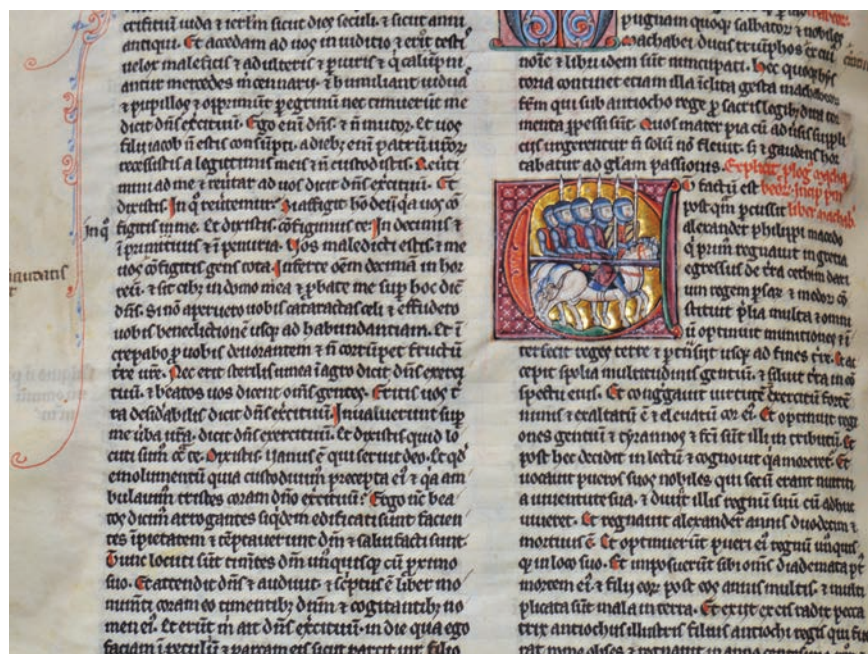 citifitiũ uida ⁊ ierłm sicut dies seculi. ⁊ sicut anni
antiqui. Et accedam ad uos in iuditio ⁊ ero testi
uelox maleficis ⁊ adulteris ⁊ piuris ⁊ q̃ calũpni
antur mercedes m̃cennarij. ⁊ humiliant uiduã
⁊ pupillos ⁊ opprimũt pegrinũ nec timuerũt me
dicit dñs exercituũ. Ego enĩ dñs. ⁊ ñ mutor. Et uos
filij iacob ñ estis cõsũpti. a diebꝫ enĩ patrũ uroꝝ
recessistis a legittimis meis ⁊ ñ custodistis. Reuti
mini ad me ⁊ reũtar ad uos dicit dñs exercituũ. Et
dixistis. In q̃ reutemur. Si affiget hõ deũ q̃a uos cõ
figitis me. Et dixistis. cõfigimus te. In decimis ⁊
ĩ primitiuis ⁊ ĩ penuria. Uos maledicti estis. ⁊ me
uos cõfigitis gens tota. Inferte oẽm decimã in hor
reũ. ⁊ sit cibꝫ in domo mea ⁊ probate me sup hoc dic̃
dñs. Si nõ aperuero uobis cataractas celi ⁊ effudero
uobis benedictionẽ usqꝫ ad habundantiam. Et ĩ
crepabo p uobis deuorantem ⁊ ñ corrũpet fructũ
tre ure. Nec erit sterilis uinea ĩ agro dicit dñs exerci
tuũ. ⁊ beatos uos dicent om̃s gentes. Eritis uos t̃
ra desidabilis dicit dñs exercituũ. Inualuerunt sup
me ũba ura. dicit dñs exercituũ. Et dixistis quid lo
cuti sum̃ cõ te. Dixistis. Uanus ẽ qui seruit deo. Et qđ
emolumentũ quia custodiuim̃ precepta eĩ ⁊ q̃a am
bulauim̃ tristes coram dño exercituũ? Ergo nũc bea
tos dicim̃ arrogantes siq̃dem edificati sunt facien
tes ĩpietatem ⁊ tẽptauerunt dm̃ ⁊ salui facti sunt.
Tunc locuti sũt timẽtes dm̃ unusquisqꝫ cũ proximo
suo. Et attendit dñs ⁊ audiuit. ⁊ sc̃ptus ẽ liber mo
numẽti coram eo timentibꝫ dnm̃ ⁊ cogitantibꝫ no
men eĩ. Et erũt m̃ ait dñs exercituũ. in die qua ego
faciam ĩ peculiũ ⁊ parcam eis sicut parcit uir filio
in q̃
pugnam quoqꝫ
machabei ducis triũphos
noĩe ⁊ libri idem sũt nuncupati. Hec quoqꝫ hys
toria continet etiam illa ĩclita gesta machabeoꝝ
frm̃ qui sub antiocho rege p sacris legibꝫ
menta ppessi sũt. Quos mater pia cũ
ciis urgerentur ñ solũ nõ fleuit. sꝫ ⁊ gaudens hor
tabatur ad głam passionis. Explicit plogꝰ macha
beoꝝ. Incip pm̃
liber machab.
Et factũ est
post q̃m pcussit
alexander philippi macedo
q̃ prim̃ regnauit in grecia
egressus de t̃ra cethim dari
um regem psaꝝ ⁊ medoꝝ cõ
stituit p̃lia multa ⁊ omni
ũ optinuit munitiones ⁊ ĩ
terfecit reges terre ⁊ ptrãsijt usqꝫ ad fines tre. Et ac
cepit spolia multitudinis gentiũ. ⁊ siluit tra in cõ
spectu eius. Et congregauit uirtutẽ ⁊ exercitũ fortẽ
nimis ⁊ exaltatũ ẽ ⁊ eleuatũ cor eĩ. Et optinuit regi
ones gentiũ ⁊ tyrannos ⁊ fc̃i sũt illi in tributũ. Et
post hec decidit in lectũ ⁊ cognouit q̃a moreret. Et
uocauit pueros suos nobiles qui secũ erant nutriti
a iuuentute sua. ⁊ diuisit illis regnũ suũ cũ adhuc
uiueret. Et regnauit alexander annis duodecim ⁊
mortuus ẽ. Et optinuerũt pueri eĩ regnũ unusquis
qꝫ in loco suo. Et imposuerũt sibi om̃s diademata pꝰ
mortem eĩ. ⁊ filij eoꝝ post eos annis multis. ⁊ multi
plicata sũt mala in terra. Et exijt ex eis radix pecca
trix antiochus illustris filius antiochi regis qui fu
rat rome obses ⁊ regnauit in anno